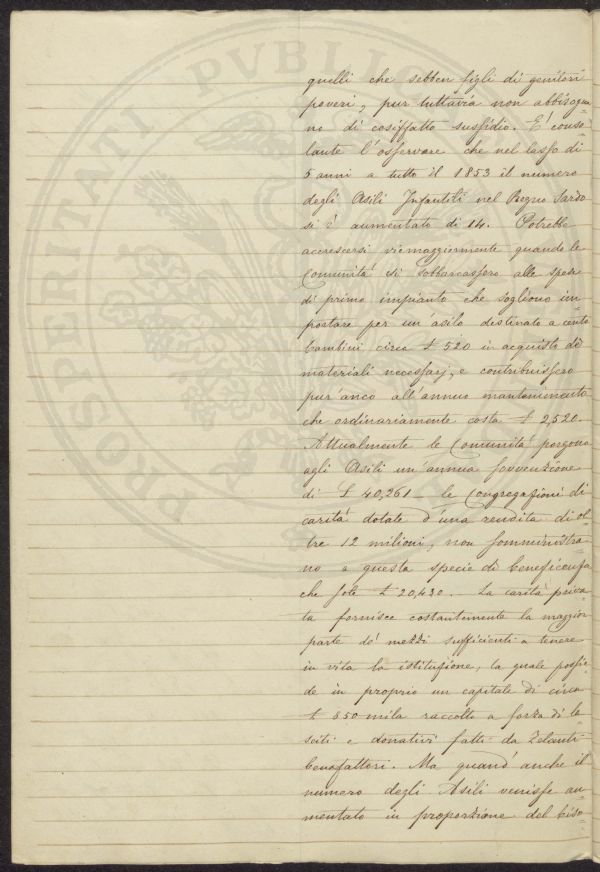 PROSPERITATI PVBLICAE
quelli che sebben figli di genitori
poveri, pur tuttavia non abbisogna
no di cosiffatto sussidio. E' conso=
lante l'osservare che nel lasso di
5 anni a tutto il 1853 il numero
degli Asili Infantili nel Regno Sardo
si è aumentato di 14. Potrebbe
accrescersi viemaggiormente quando le
Comunità si sobbarcassero alle spese
di primo impianto che sogliono im=
portare per un'asilo destinato a cento
bambini circa £ 520 in acquisto di
materiali necessarj, e contribuissero
pur'anco all'annuo mantenimento
che ordinariamente costa £ 2,520.
Attualmente le Comunità porgono
agli Asili un'annua sovvenzione
di £ 40,261 – le Congregazioni di
carità dotate d'una rendita di ol=
tre 12 milioni, non somministra=
no a questa specie di beneficenza
che sole £ 20,430. La carità priva=
ta fornisce costantemente la maggior
parte de' mezzi sufficienti a tenere
in vita la istituzione, la quale possie=
de in proprio un capitale di circa
£ 850 mila raccolto a forza di la=
sciti e donativi fatti da Zelanti
benefattori. Ma quand'anche il
numero degli Asili venisse au=
mentato in proporzione del biso=